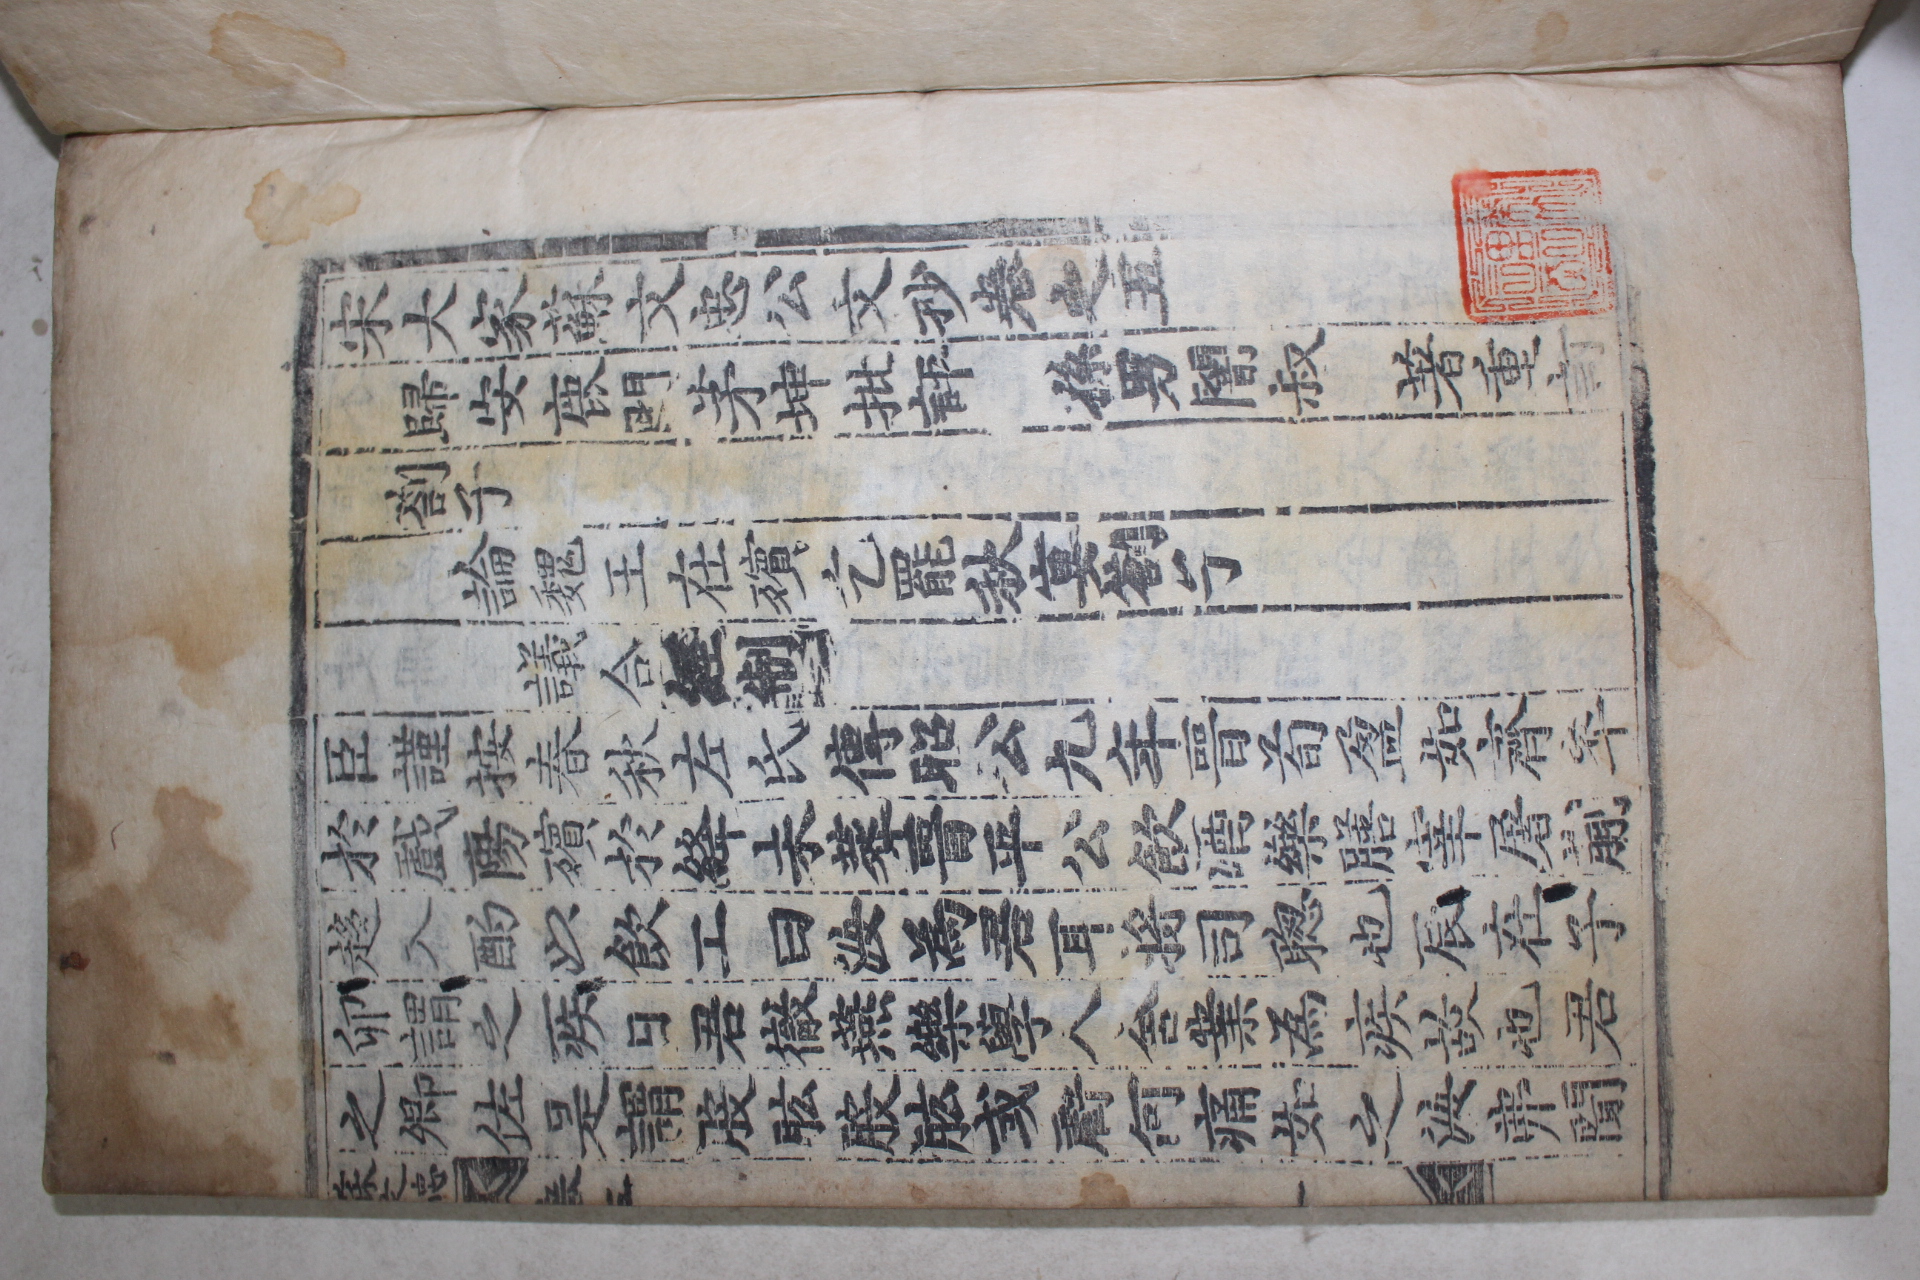 宋大家蘇文忠公文抄卷之五
歸安鹿門茅坤批評 孫男闇叔 著重訂
劄子
論魏王在殯乞罷秋宴劄子
議合經制
臣謹按春秋左氏傳昭公九年晉荀盈如齊卒
於戲陽殯於絳未葬晉平公飲酒樂膳宰屠蒯
趍入酌以飲工曰汝為君耳將司聰也辰在子
卯謂之疾日君徹燕樂學人舍業為疾故也君
之卿佐是謂股肱股肱或虧何痛如之汝弗聞
蘇文忠 卷五 一